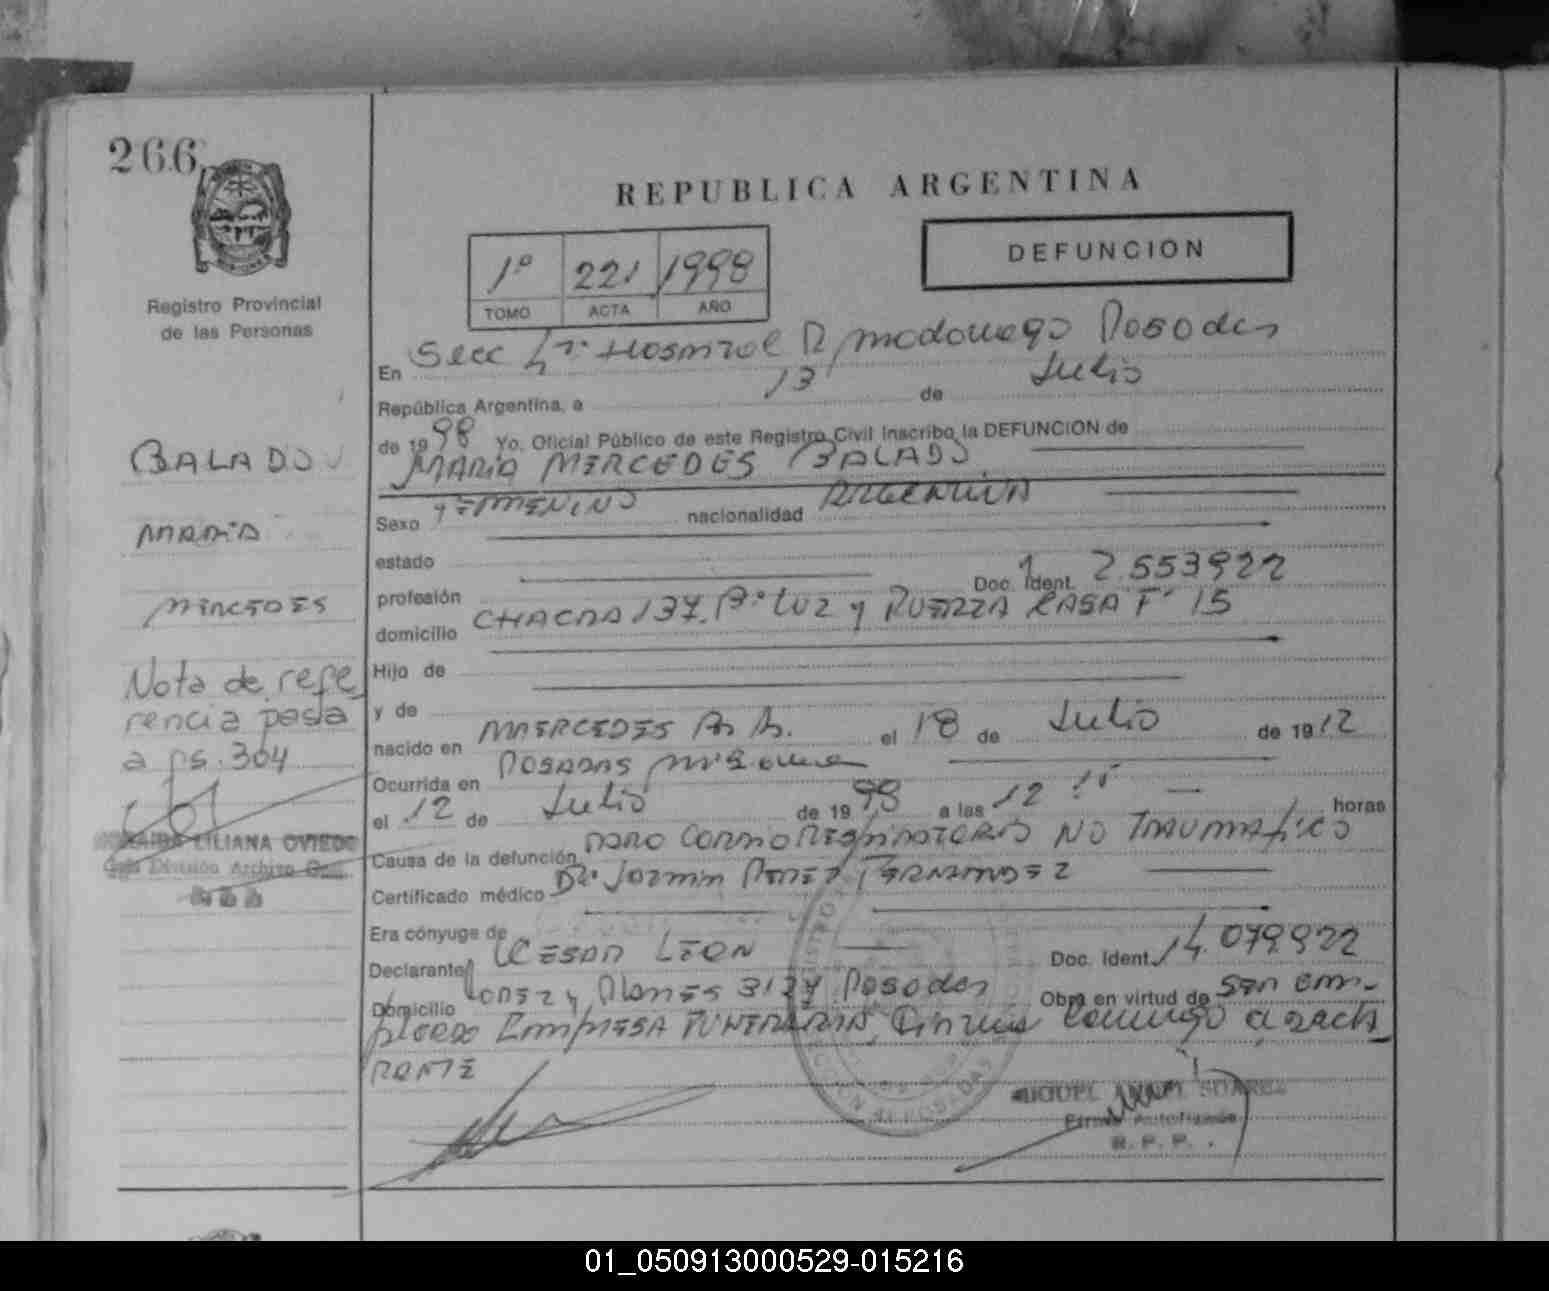 266
REPUBLICA ARGENTINA
1º 221 1998
TOMO ACTA AÑO
DEFUNCION
Registro Provincial
de las Personas
En Secc 4ª Hospital R Madariaga Posadas
República Argentina, a 13 de Julio
de 1998 Yo, Oficial Público de este Registro Civil inscribo la DEFUNCION de
MARIA MERCEDES BALADO
BALADO
MARIA
MERCEDES
Nota de refe
rencia pasa
a fs. 304
LILIANA OVIEDO
División Archivo
Sexo FEMENINO nacionalidad ARGENTINA
estado
profesión Doc. Ident. 2.553922
domicilio CHACRA 137 Bº LUZ y FUERZA CASA Fº 15
Hijo de
y de
nacido en MERCEDES Bs As. el 18 de Julio de 1912
Ocurrida en POSADAS Misiones
el 12 de Julio de 1998 a las 12 15 horas
Causa de la defunción PARO CARDIORESPIRATORIO NO TRAUMATICO
Certificado médico Dr. PEREZ FERNANDEZ
Era cónyuge de
Declarante CESAR LEON Doc. Ident. 14.079922
Domicilio LOPEZ y PLANES 3127 Posadas Obra en virtud de ser em-
pleado EMPRESA FUNERARIA,
RENTE
MIGUEL ANGEL SUAREZ
Firma Autorizada
R. P. P.
01_050913000529-015216